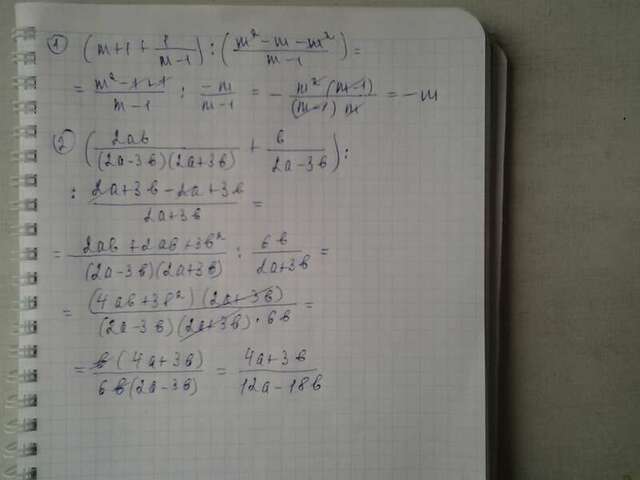 ① (m+1+1/(m-1)) : ((m²-m-m²)/(m-1)) =
= (m²-1+1)/(m-1) : (-m)/(m-1) = -(m²(m-1))/((m-1)m) = -m
② (2ab/((2a-3b)(2a+3b)) + b/(2a-3b)) :
: (2a+3b-2a+3b)/(2a+3b) =
= (2ab+2ab+3b²)/((2a-3b)(2a+3b)) : 6b/(2a+3b) =
= ((4ab+3b²)(2a+3b))/((2a-3b)(2a+3b)·6b) =
= (b(4a+3b))/(6b(2a-3b)) = (4a+3b)/(12a-18b)